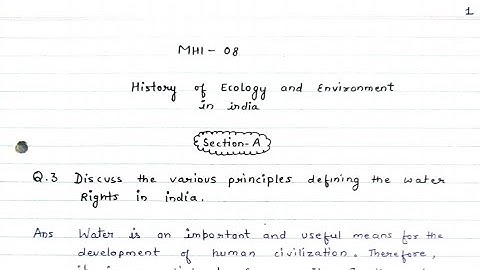 1
MHI - 08
History of Ecology and Environment
in india
Section-A
Q.3 Discuss the various principles defining the water
Rights in india.
Ans Water is an important and useful means for the
development of human civilization. Therefore,